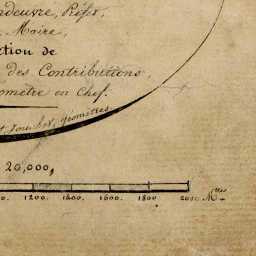 ndeuvre, Préfet,
Maire,
ction de
des Contributions,
omètre en Chef.
géomètres
20,000,
0. 1200. 1400. 1600. 1800. 2000 M.tres